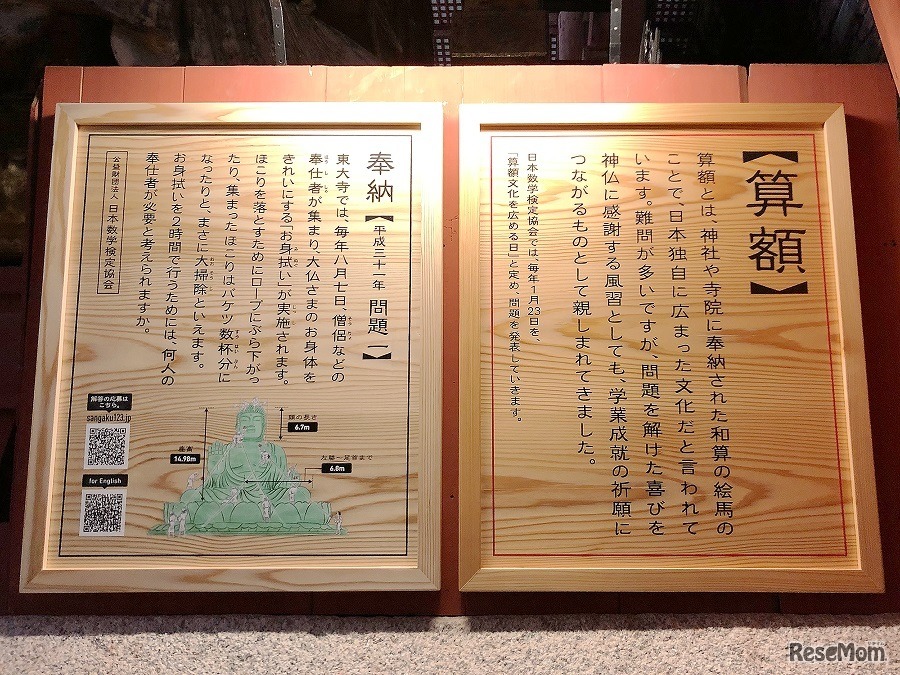 【算額】
算額とは、神社や寺院に奉納された和算の絵馬の
ことで、日本独自に広まった文化だと言われて
います。難問が多いですが、問題を解けた喜びを
神仏に感謝する風習としても、学業成就の祈願に
つながるものとして親しまれてきました。
日本数学検定協会では、毎年1月23日を、
「算額文化を広める日」と定め、問題を発表していきます。
奉納【平成三十一年 問題一】
東大寺では、毎年八月七日、僧侶などの
奉仕者が集まり大仏さまのお身体を
きれいにする「お身拭い」が実施されます。
ほこりを落とすためにロープにぶら下がっ
たり、集まったほこりはバケツ数杯分に
なったりと、まさに大掃除といえます。
お身拭いを2時間で行うためには、何人の
奉仕者が必要と考えられますか。
公益財団法人 日本数学検定協会
解答の応募は
こちら。
sangaku123.jp
for English
顔の長さ
6.7m
座高
14.98m
左膝〜足首まで
6.8m
ReseMom